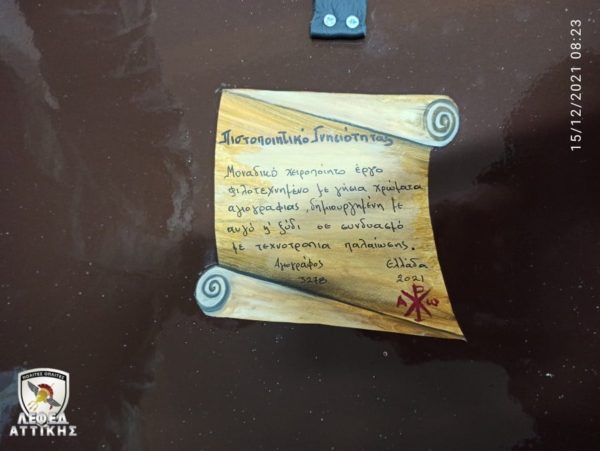 15/12/2021 08:23
Πιστοποιητικό Γνησιότητας
Μοναδικό χειροποίητο έργο
φιλοτεχνημένο με γήινα χρώματα
αγιογραφίας, δημιουργημένη με
αυγό & ξύδι σε συνδυασμό
με τεχνοτροπία παλαίωσης.
Αγιογράφος Ελλάδα
2021
Α Ρ Ω
ΠΟΛΙΤΕΣ ΟΠΛΙΤΕΣ
ΛΕΦΕΔ
ΑΤΤΙΚΗΣ